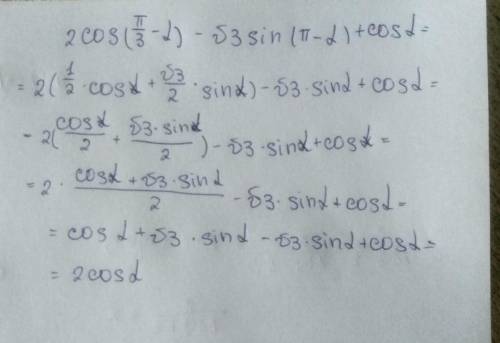 2cos(π/3 - α) - √3 sin(π - α) + cos α =
= 2(1/2 · cos α + √3/2 · sin α) - √3 · sin α + cos α =
- 2(cos α/2 + √3 · sin α/2) - √3 · sin α + cos α =
= 2 · (cos α + √3 · sin α)/2 - √3 · sin α + cos α =
= cos α + √3 · sin α - √3 · sin α + cos α =
= 2cos α